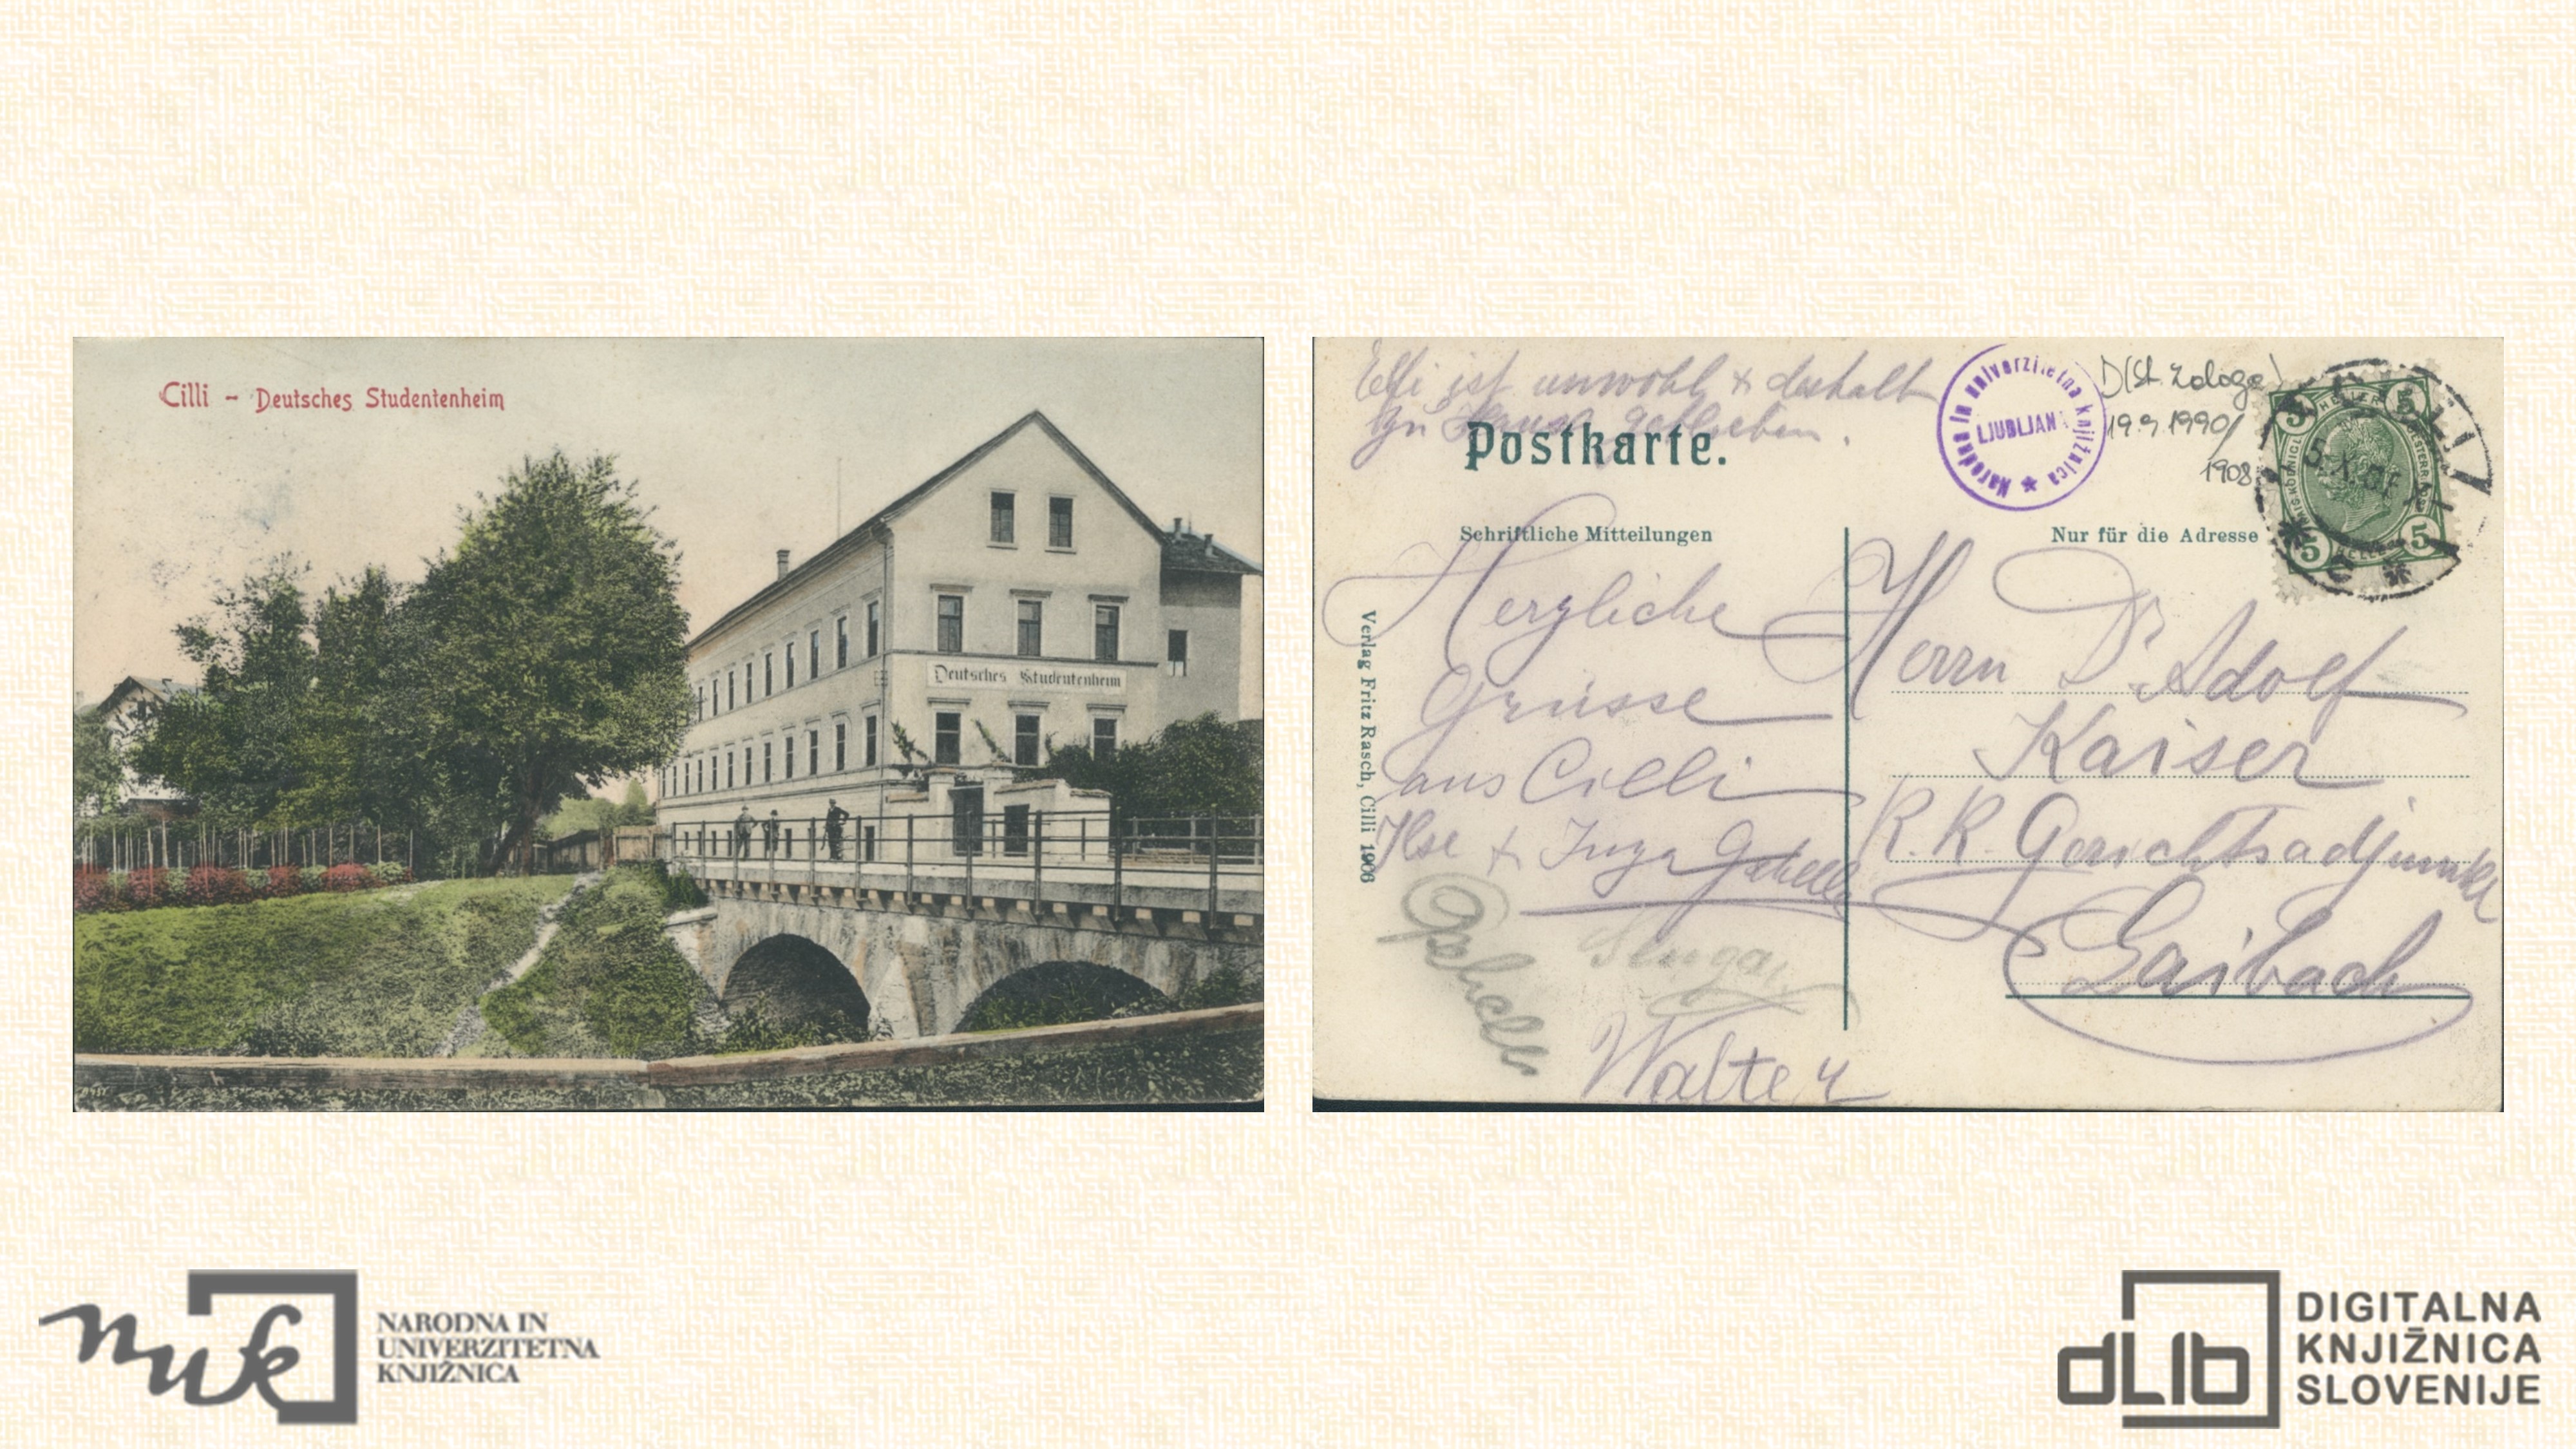 Cilli - Deutsches Studentenheim
Deutsches Studentenheim
Elfi ist unwohl & deshalb
zu Hause geblieben.
Postkarte.
Narodna in univerzitetna knjižnica
LJUBLJANA
D(st. zaloga)
19.9.1990/
1908
5 HELLER 5
5. X. 08
5 HELLER 5
Schriftliche Mitteilungen
Nur für die Adresse
Verlag Fritz Rasch, Cilli 1906
Herzliche
Grüsse
aus Cilli
Ilse & Inga
Walter
Herrn Dr. Adolf
Kaiser
K. K. Gerichtsadjunkt
Laibach
nuk
NARODNA IN
UNIVERZITETNA
KNJIŽNICA
dLib
DIGITALNA
KNJIŽNICA
SLOVENIJE